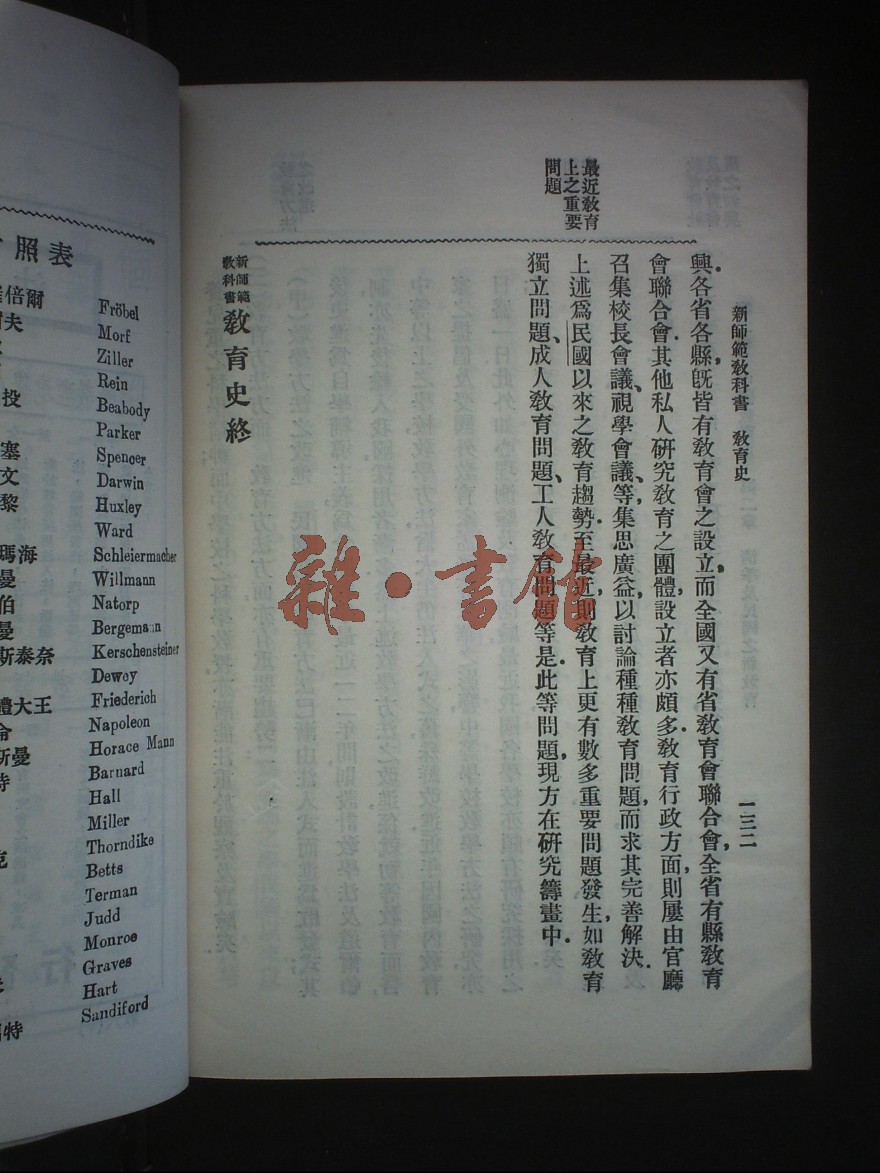 新師範教科書 教育史
一三二
興各省各縣旣皆有教育會之設立而全國又有省教育會聯合會全省有縣教育
會聯合會其他私人研究教育之團體設立者亦頗多教育行政方面則屢由官廳
召集校長會議視學會議等集思廣益以討論種種教育問題而求其完善解決
上述爲民國以來之教育趨勢至最近則教育上更有數多重要問題發生如教育
獨立問題成人教育問題工人教育問題等是此等問題現方在研究籌畫中
最近教育
上之重要
問題
新師範
教科書
教育史終
雜·書館
照表
倍爾
Fröbel
夫
Morf
Ziller
Rein
投
Beabody
Parker
塞
Spencer
文
Darwin
黎
Huxley
Ward
瑪海
Schleiermacher
曼
Willmann
伯
Natorp
曼
Bergemann
斯泰奈
Kerschensteiner
Dewey
體大王
Friederich
Napoleon
斯曼
Horace Mann
特
Barnard
Hall
Miller
Thorndike
克
Betts
Terman
Judd
Monroe
Graves
Hart
特
Sandiford
行